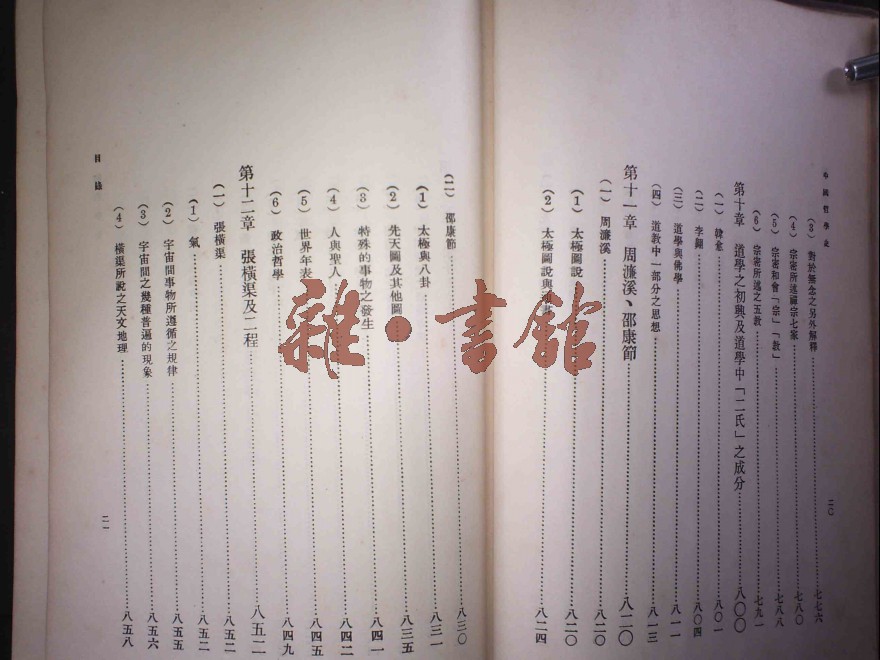 中國哲學史
(3) 對於無念之另外解釋……七七六
(4) 宗密所述禪宗七家……七八〇
(5) 宗密和會「宗」「教」……七八八
(6) 宗密所述之五教……七九一
第十章 道學之初興及道學中「二氏」之成分……八〇〇
(一) 韓愈……八〇一
(二) 李翺……八〇四
(三) 道學與佛學……八一一
(四) 道教中一部分之思想……八一三
第十一章 周濂溪、邵康節……八二〇
(一) 周濂溪……八二〇
(1) 太極圖說……八二〇
(2) 太極圖說與……八二四
二〇
(二) 邵康節……八三〇
(1) 太極與八卦……八三一
(2) 先天圖及其他圖……八三五
(3) 特殊的事物之發生……八四一
(4) 人與聖人……八四二
(5) 世界年表……八四五
(6) 政治哲學……八四九
第十二章 張橫渠及二程……八五二
(一) 張橫渠……八五二
(1) 氣……八五二
(2) 宇宙間事物所遵循之規律……八五五
(3) 宇宙間之幾種普遍的現象……八五六
(4) 橫渠所說之天文地理……八五八
目錄
二一
雜·書館